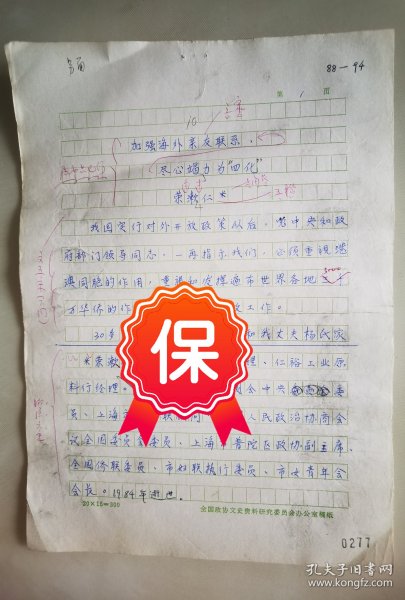 88-94
第 1 页
10
加强海外亲友联系,
尽心竭力为“四化”
荣漱仁*
我国实行对外开放政策以后,党中央和政
府部门领导同志,一再指示我们,必须重视港
澳同胞的作用,重视和发挥遍布世界各地
万华侨的作 工作。
30年 和我丈夫杨氏家
*荣漱 理、仁裕工业原
料行经理。 会中央 委
员、上海 人民政治协商会
议全国委员会委员、上海市普陀区政协副主席、
全国侨联委员、市妇联执行委员、市女青年会
会长。1984年逝世。
20×15=300
全国政协文史资料研究委员会办公室稿纸
0277
保
孔夫子旧书网
www.kongfz.com